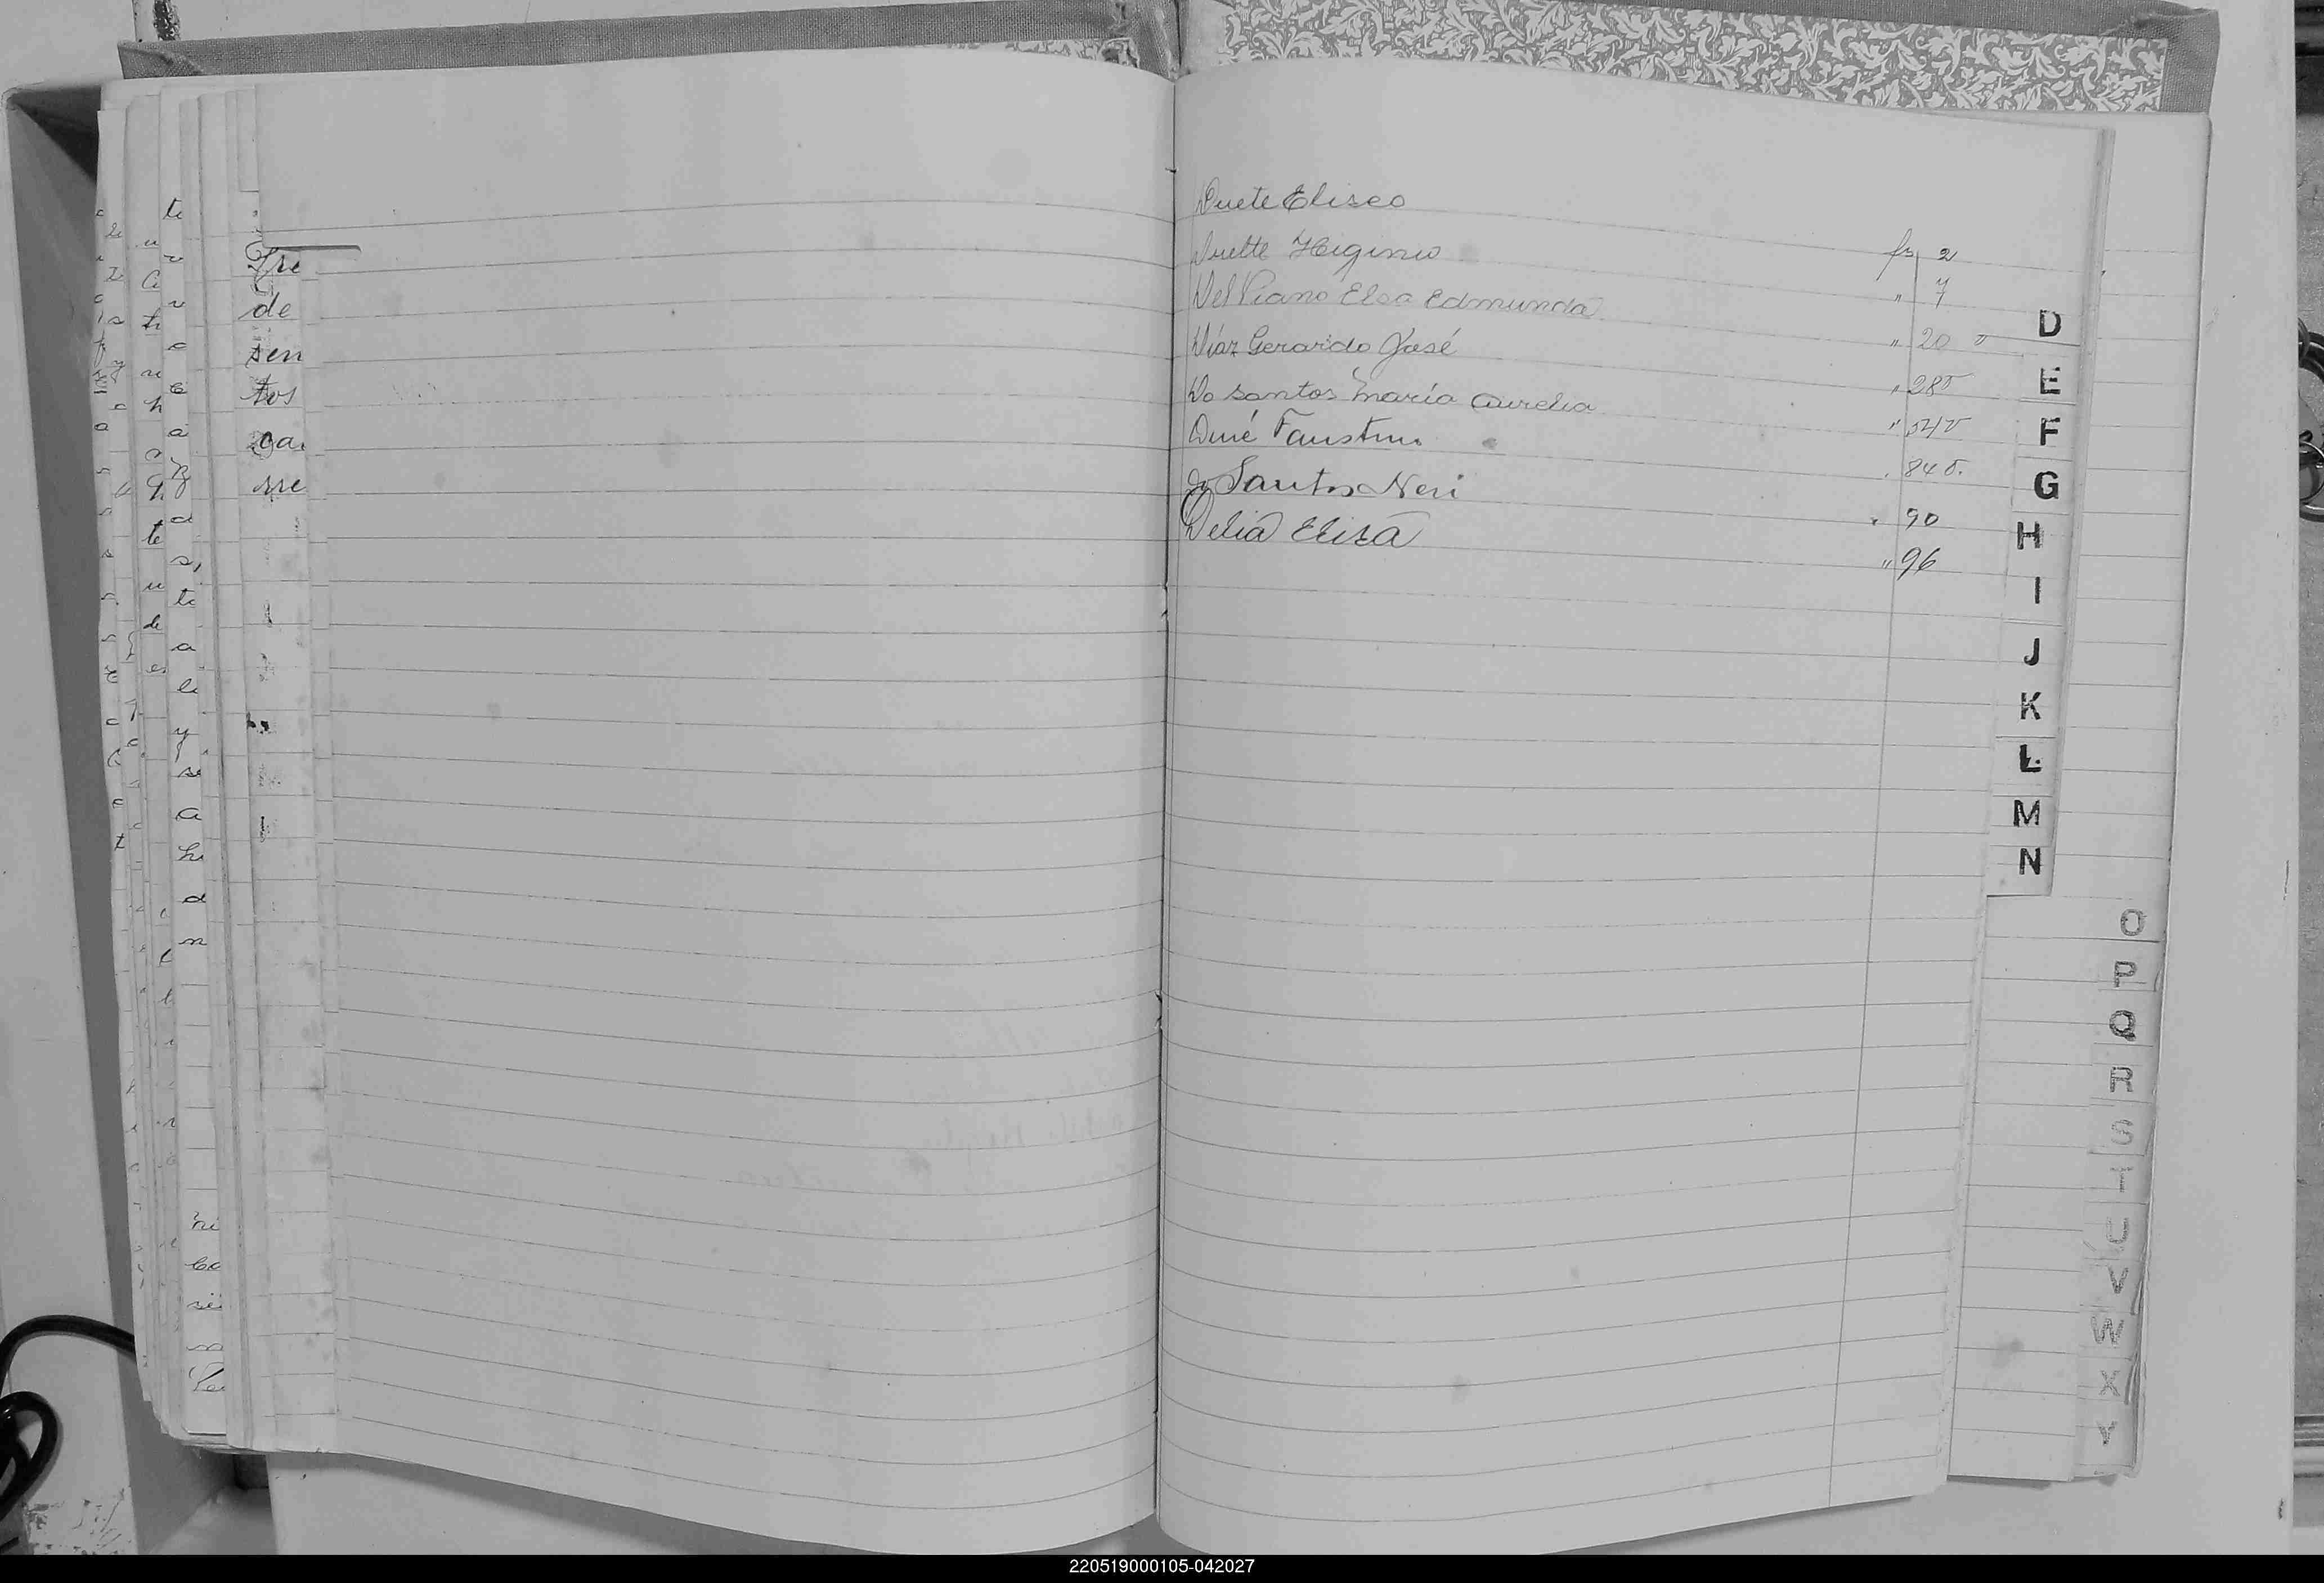 Tre
de
sen
tos
Duete Eliseo
Duette Higinio fs 2
Del Piano Elsa Edmunda " 7
Díaz Gerardo José " 20 v
Do santos María Aurelia " 28v
Duré Faustino " 54v
do Santos Neri " 84 v.
Delia Elisa " 90
" 96
D
E
F
G
H
I
J
K
L
M
N
O
P
Q
R
S
T
U
V
W
X
Y
220519000105-042027